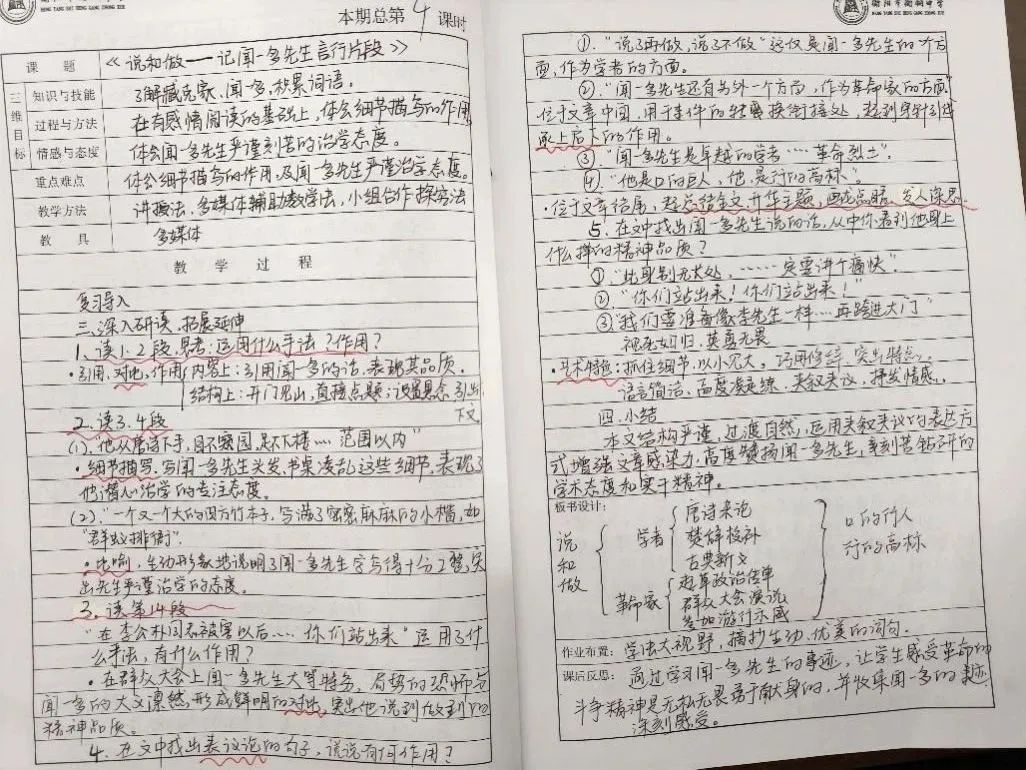 本期总第4课时
课题 《说和做——记闻一多先生言行片段》
三维目标
知识与技能 了解臧克家、闻一多,积累词语。
过程与方法 在有感情阅读的基础上,体会细节描写的作用
情感与态度 体会闻一多先生严谨刻苦的治学态度。
重点难点 体会细节描写的作用,及闻一多先生严谨治学态度。
教学方法 讲授法,多媒体辅助教学法,小组合作探究法
教具 多媒体
教学过程
复习导入
三、深入研读、拓展延伸
1、读1-2段,思考:运用什么手法?作用?
·引用,对比,作用 内容上:引用闻一多的话,表现其品质。
结构上:开门见山,直接点题;设置悬念,引出
下文
2、读3.4段
(1).“他从唐诗下手,目不窥园,足不下楼……范围以内”
·细节描写,写闻一多先生头发、书桌凌乱这些细节,表现了
他潜心治学的专注态度。
(2).“一个又一个大的四方竹纸本子,写满了密密麻麻的小楷,如
“群蚁排衙”.
·比喻,生动形象地说明了闻一多先生字写得十分工整,突
出先生严谨治学的态度。
3、读第14段
“在李公朴同志被害以后……你们站出来”运用了什
么手法,有什么作用?
·在群众大会上闻一多先生大骂特务,局势的恐怖与
闻一多的大义凛然,形成鲜明的对比,突出他说到做到的
精神品质。
4、在文中找出表议论的句子,说说有何作用?
①.“说了再做,说了不做”这仅是闻一多先生的一个方
面,作为学者的方面。
②.“闻一多先生还有另外一个方面,作为革命家的方面”
位于文章中间,用于事件的转换衔接处,起到穿针引线
承上启下的作用。
③.“闻一多先生是卓越的学者……革命烈士”.
④.“他是口的巨人,他是行的高标”.
·位于文章结尾,起总结全文,升华主题,画龙点睛,发人深思.
5、在文中找出闻一多先生说的话,从中你看到他身上
什么样的精神品质?
①.“此身别无长处,……一定要讲个痛快”.
②.“你们站出来!你们站出来!”
③“我们要准备像李先生一样……再跨进大门”
视死如归,英勇无畏
·艺术特色:抓住细节,以小见大。巧用修辞,突出特点。
语言简洁、高度凝练、夹叙夹议,抒发情感。
四、小结
本文结构严谨,过渡自然,运用夹叙夹议的表达方
式增强文章感染力,高度赞扬闻一多先生,刻苦钻研的
学术态度和实干精神。
板书设计:
说和做
学者 唐诗杂论
楚辞校补
古典新义
革命家 起草政治传单
群众大会演说
参加游行示威
口的巨人
行的高标
作业布置:学法大视野,摘抄生动、优美的词句。
课后反思:通过学习闻一多先生的事迹,让学生感受革命的
斗争精神是无私无畏勇于献身的,并收集闻一多的事迹
深刻感受。